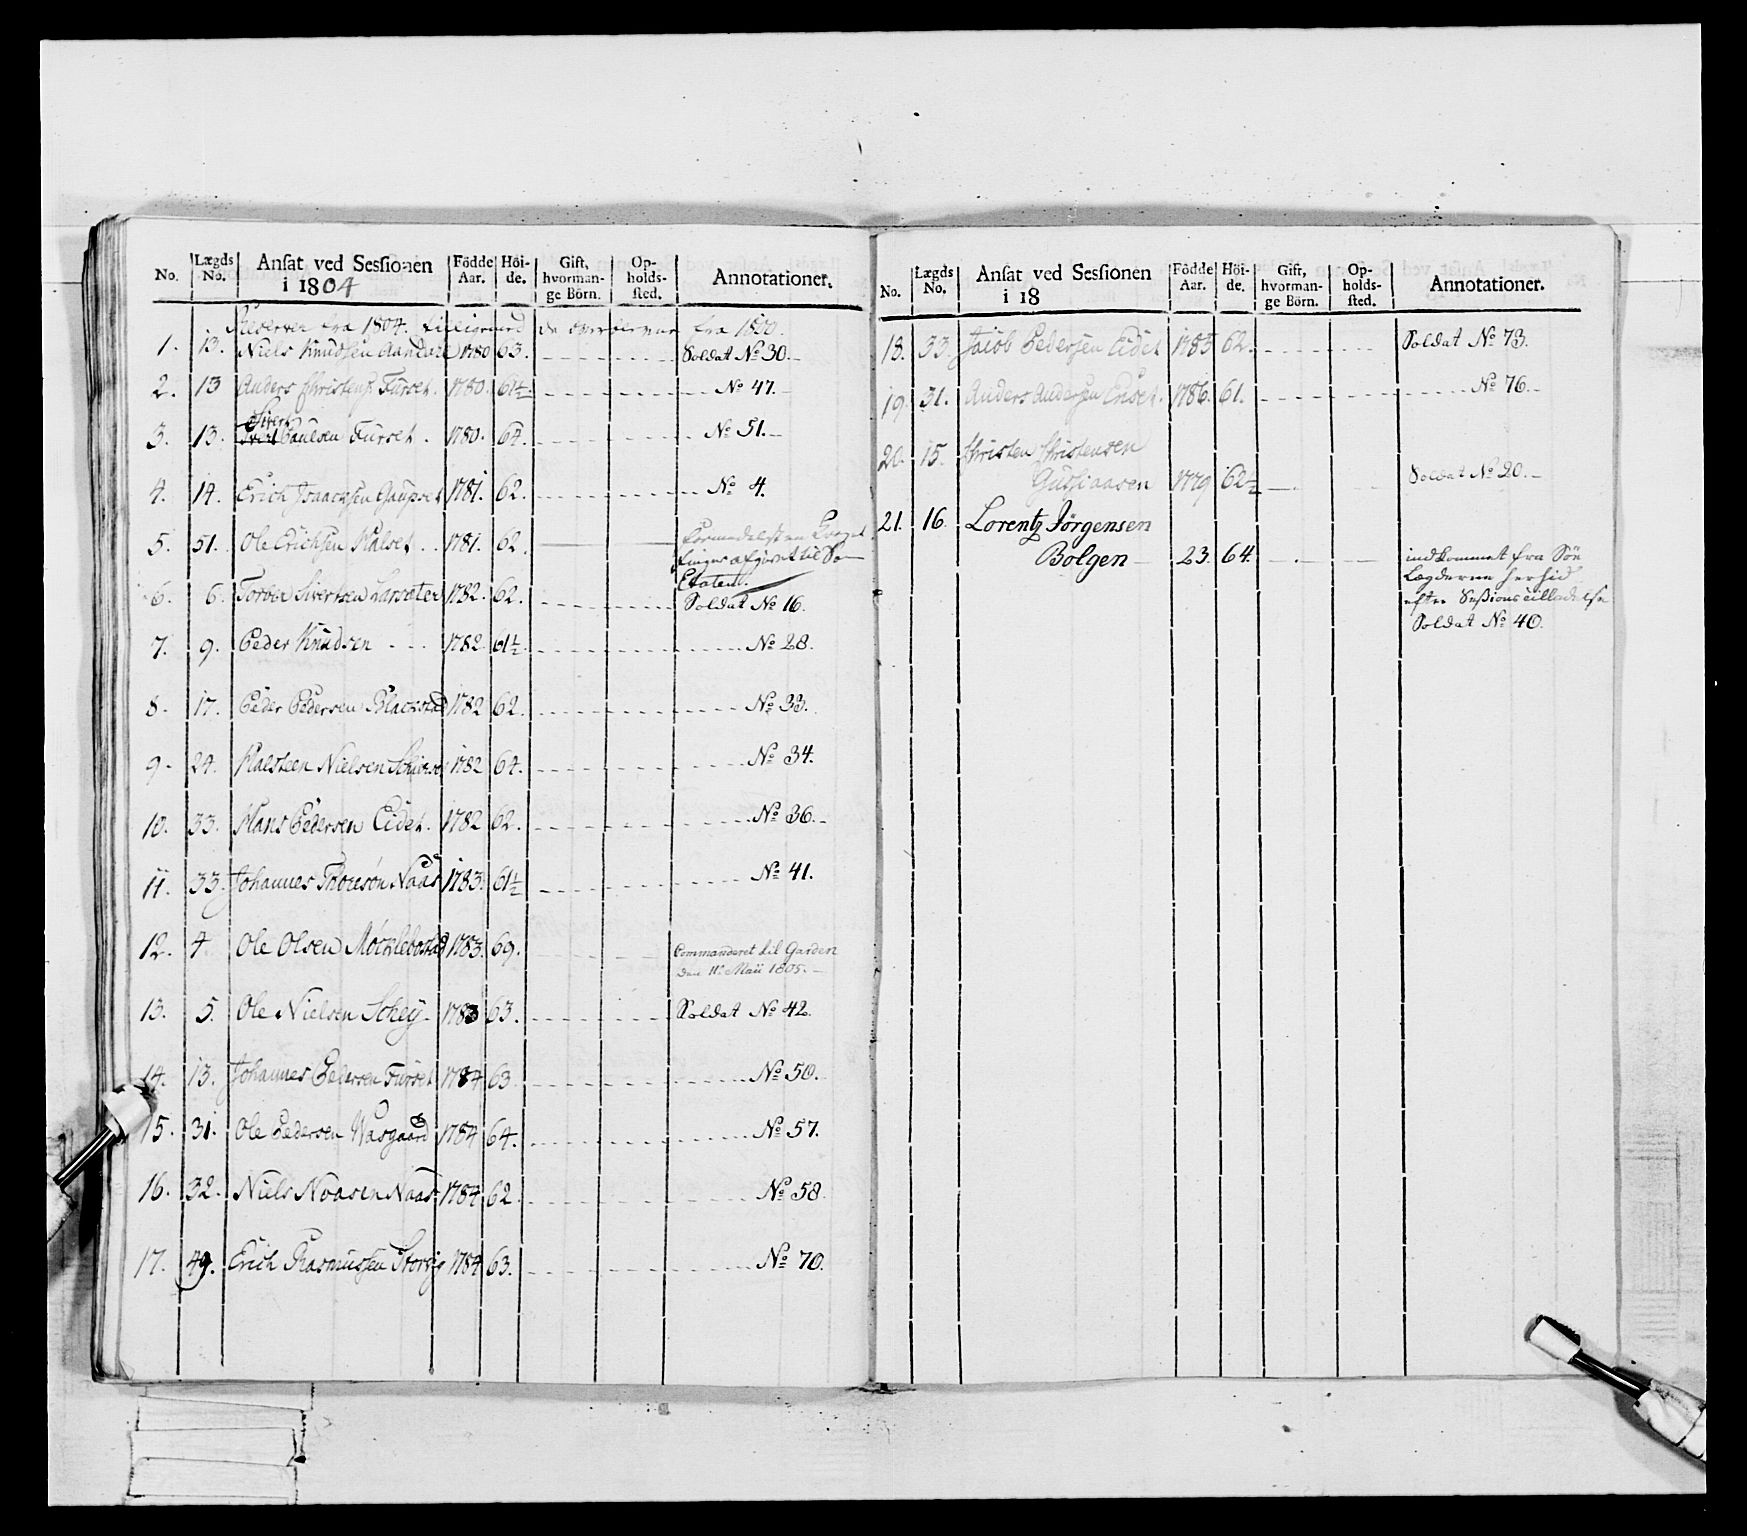 No. Lægds No. Ansat ved Sessionen i 1804 Födde Aar. Höi-de. Gift, hvorman-ge Börn. Op-holds-sted. Annotationer.
fra 1804. tilligemed de fra 1800.
1. 13. Niels Knudsen 1780 63. Soldat No 30.
2. 13 Anders Christens. Furset. 1780. 61½ No 47.
Sivert
3. 13. Paulsen Furset. 1780. 64. No 51.
4. 14. Erich Isaachsen Gaupset 1781. 62. No 4.
5. 51. Ole Erichsen Halset 1781. 62.
finger afgivet til Sö
Etaten.
6. 6. Sivertsen Larsæter 1782. 62. Soldat No 16.
7. 9. Peder Knudsen 1782. 61½ No 28.
8. 17. Peder Pedersen 1782 62. No 33.
9. 24. Halsteen Nielsen 1782 64. No 34.
10. 33. Hans Pedersen Eidet. 1782 62. No 36.
11. 33. Johannes Thoresön Naas 1783. 61½ No 41.
12. 4 Ole Olsen Möcklebostad 1783. 69. Commanderet til Garden
den 11te Maii 1805.
13. 5. Ole Nielsen Schey 1783 63. Soldat No 42.
14. 13. Johannes Pedersen Furset 1784 63. No 50.
15. 31. Ole Pedersen Waagaard 1784 64. No 57.
16. 32. Niels Noasen Naas 1784 62. No 58.
17. 49. Erich Rasmussen 1784 63. No 70.
No. Lægds No. Ansat ved Sessionen i 18 Födde Aar. Höi-de. Gift, hvorman-ge Börn. Op-holds-sted. Annotationer.
18. 33. Jacob Pedersen Eidet 1785 62. Soldat No 73.
19. 31. Anders Andersen 1786. 61. No 76.
20. 15. Christen Christensen
Gussiaasen 1779 62½ Soldat No 20.
21. 16. Lorentz Jörgensen
Bolgen 23. 64. indkommet fra Söe
Lægderne herhid
efter Sessions tilladelse
Soldat No 40.